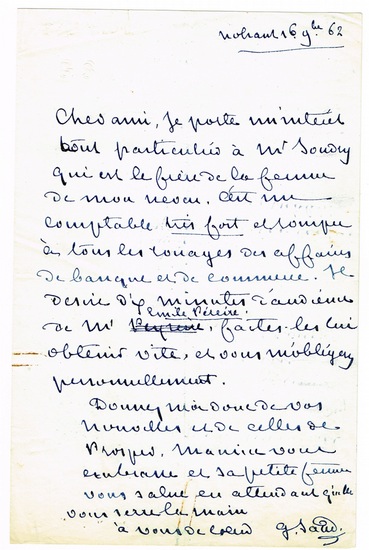 Nohant 16 9bre 62
Cher ami, je porte un intérêt
tout particulier à Mr Soudry
qui est le frère de la femme
de mon neveu. C'est un
comptable très fort et rompu
à tous les rouages des affaires
de banque et de commerce. Je
desire dix minutes d'audience
Emile Péreire
de Mr, faites-les lui
obtenir vite, et vous m'obligerez
personnellement.
Donnez moi donc de vos
nouvelles et de celles de
Prosper. Maurice vous
embrasse et sa petite femme
vous salue en attendant qu'elle
vous serre la main
à vous de cœur G. Sand.